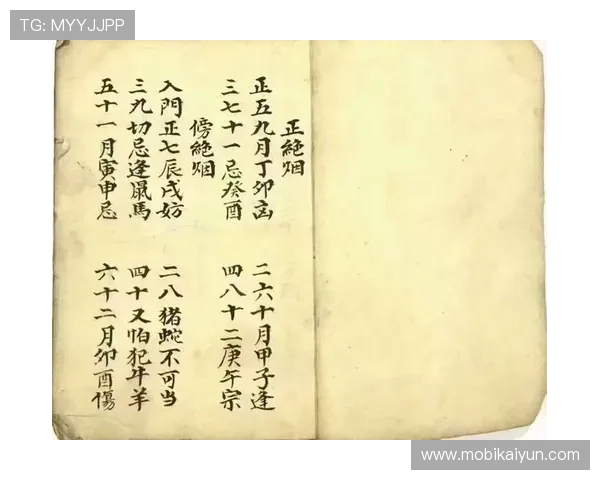 TG: MYYJJPP
正絕烟
正五九月丁卯凶 二六十月甲子逢
三七十一忌癸酉 四八十二庚午宗
傍絕烟
入門正七辰戌妨 二八猪蛇不可当
三九切忌逢鼠馬 四十又怕犯牛羊
五十一月寅申忌 六十二月卯酉傷
www.mobikaiyun.com